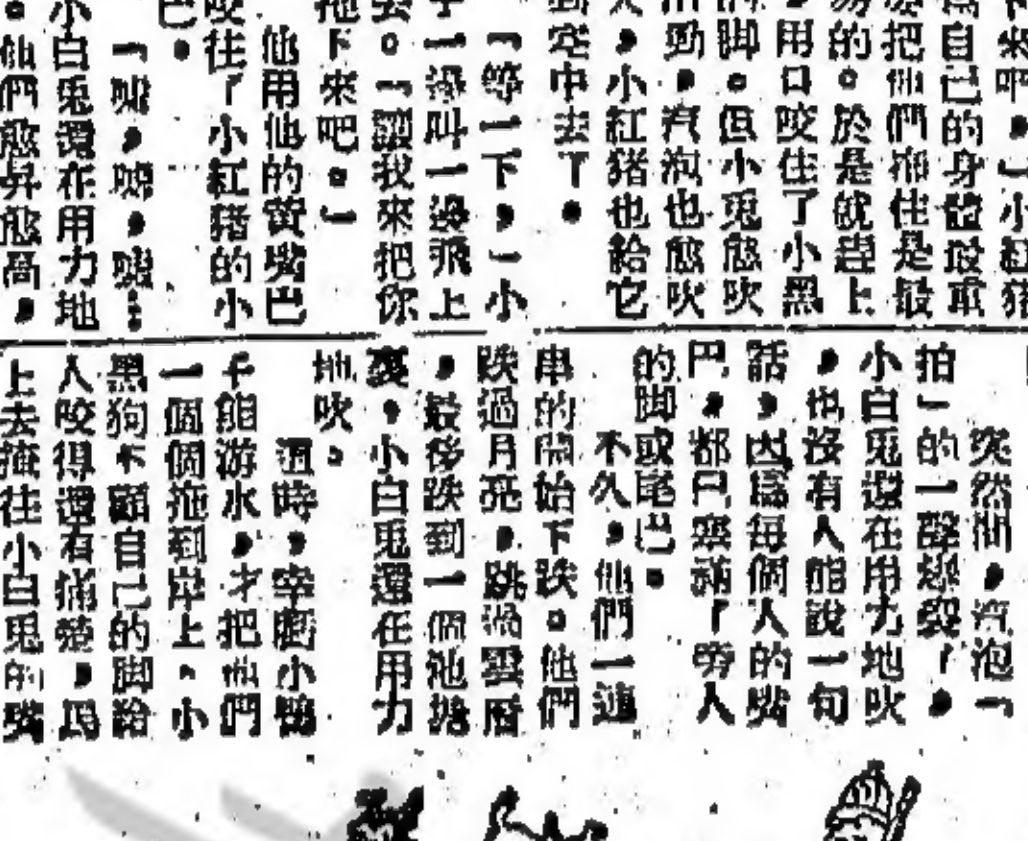 來吧。」小紅豬
為自己的身體最重
把他們拖住是最
易的。於是就趕上
用口咬住了小黑
的脚。但小兎愈吹
勁,汽泡也愈吹
,小紅猪也給它
到空中去了。
「等一下,」小
子一邊叫一邊飛上
去。「讓我來把你
拖下來吧。」
他用他的黄嘴巴
咬住了小紅豬的小
巴。
「唬,唬,唬…
小白兎還在用力地
。他們愈昇愈高,
突然間,汽泡「
拍」的一聲爆裂了,
小白兎還在用力地吹
,也沒有人能說一句
話,因爲每個人的嘴
巴,都只塞滿了旁人
的脚或尾巴。
不久,他們一連
串的開始下跌。他們
跌過月亮,跳過雲層
,最後跌到一個池塘
裏,小白兎還在用力
地吹。
這時,幸虧小鴨
子能游水,才把他們
一個個拖到岸上。小
黑狗不顧自己的脚給
人咬得還有痛楚,爲
上去掩住小白兎的嘴